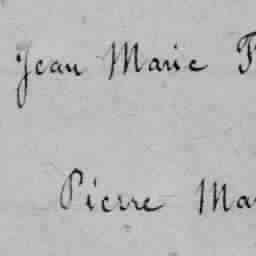 Jean Marie F
Pierre Ma